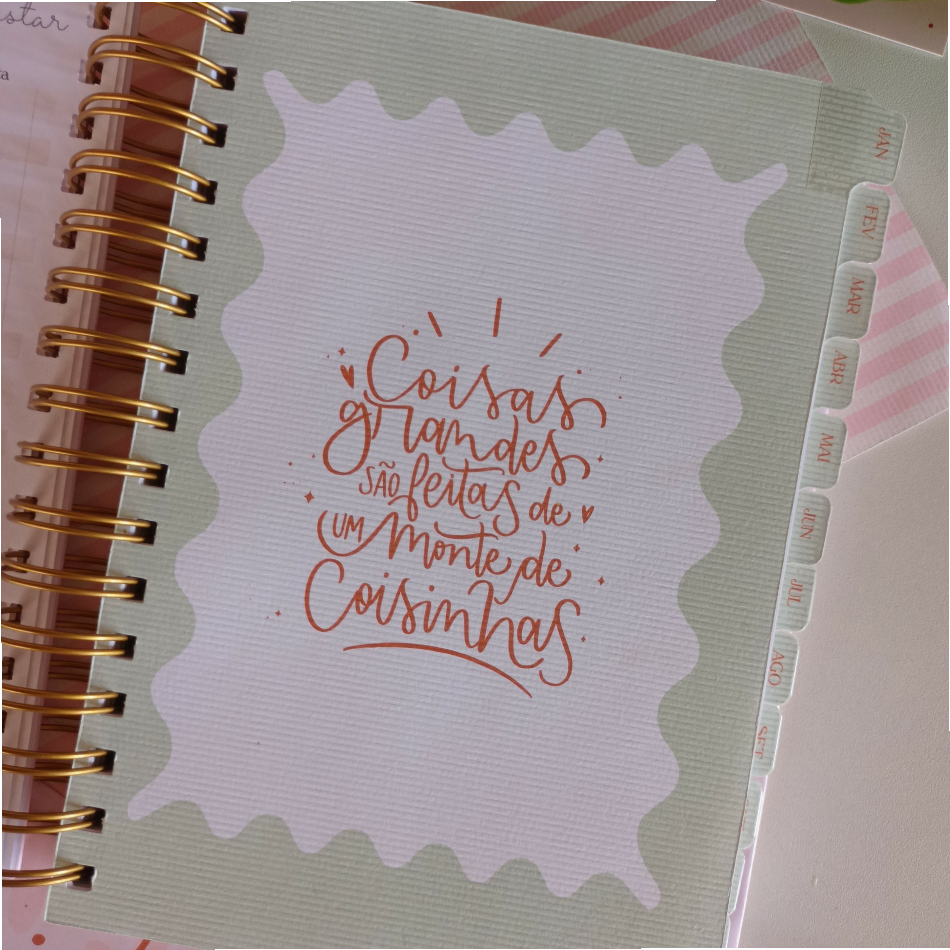 star
ta
Coisas
grandes
SÃO feitas de
UM monte de
Coisinhas
JAN
FEV
MAR
ABR
MAI
JUN
JUL
AGO
SET